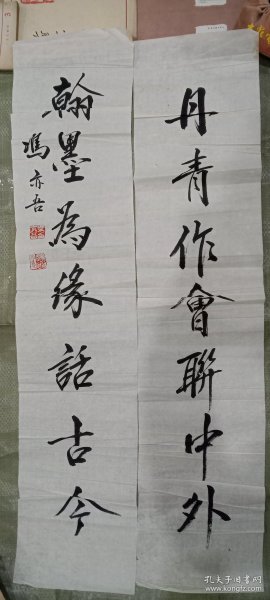 丹青作會聯中外
翰墨為緣話古今
馮亦吾
孔夫子旧书网
www.kongfz.com